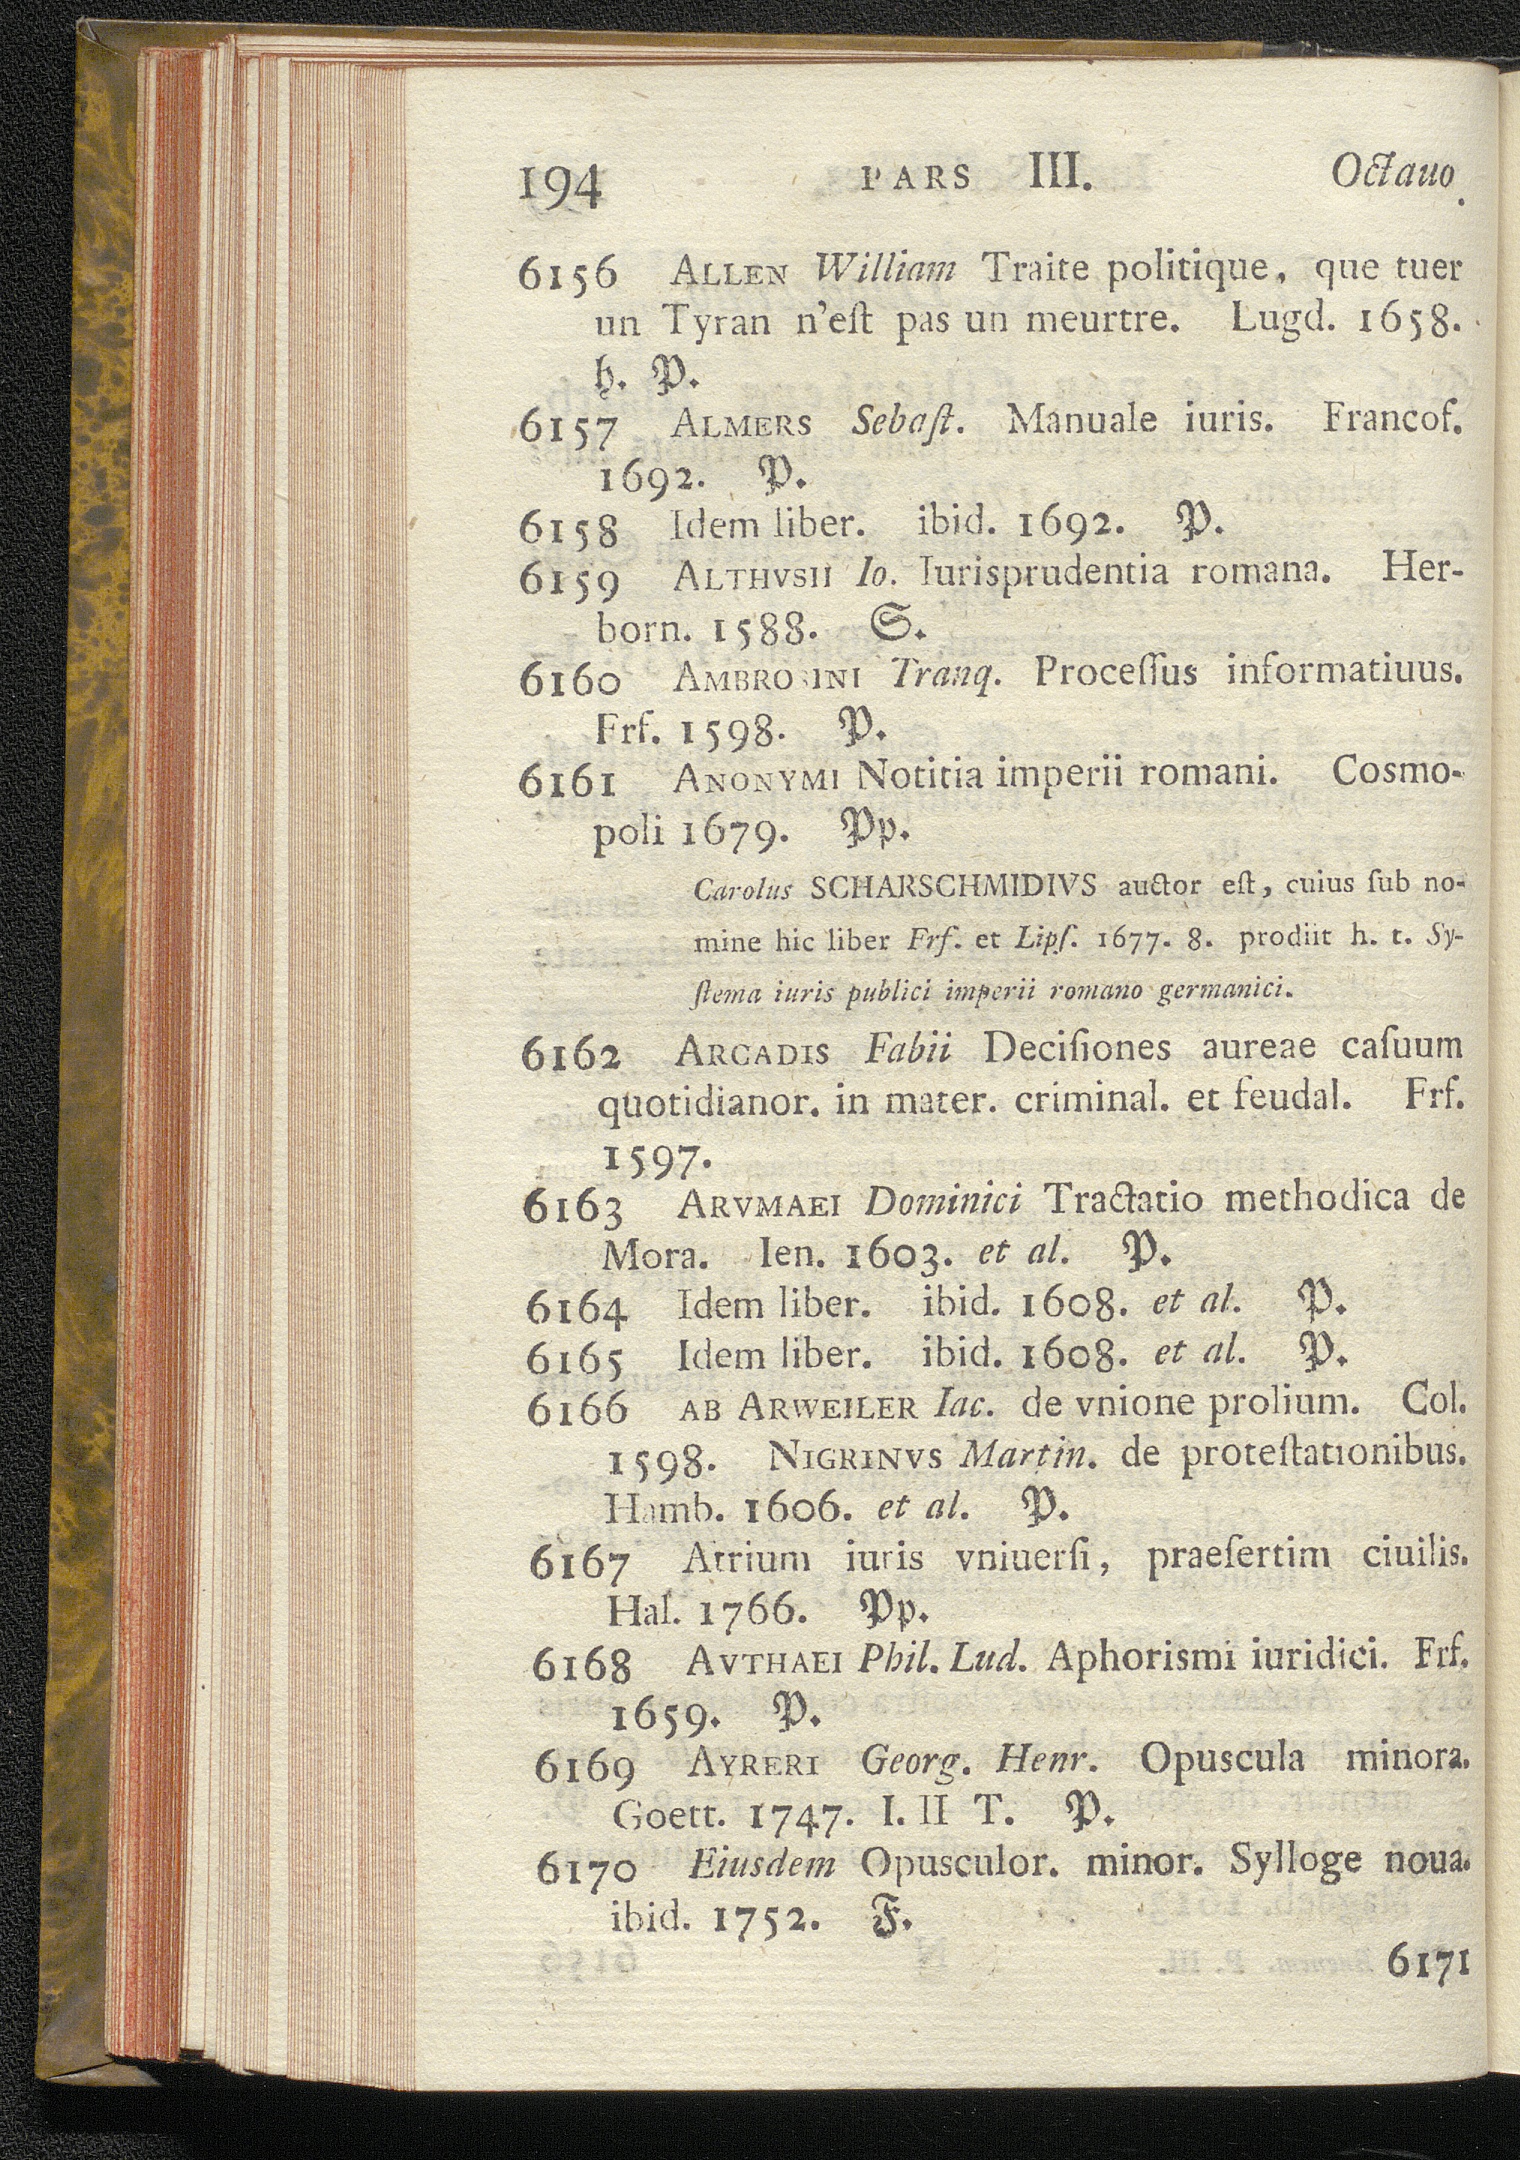 194 PARS III. Octauo.
6156 ALLEN William Traite politique, que tuer
un Tyran n'eſt pas un meurtre. Lugd. 1658.
h. P.
6157 ALMERS Sebaſt. Manuale iuris. Francof.
1692. P.
6158 Idem liber. ibid. 1692. P.
6159 ALTHVSII Io. Iurisprudentia romana. Her-
born. 1588. S.
6160 AMBROSINI Tranq. Proceſſus informatiuus.
Frf. 1598. P.
6161 ANONYMI Notitia imperii romani. Cosmo-
poli 1679. Pp.
Carolus SCHARSCHMIDIVS auctor eſt, cuius ſub no-
mine hic liber Frf. et Lipſ. 1677. 8. prodiit h. t. Sy-
ſtema iuris publici imperii romano germanici.
6162 ARCADIS Fabii Deciſiones aureae caſuum
quotidianor. in mater. criminal. et feudal. Frf.
1597.
6163 ARVMAEI Dominici Tractatio methodica de
Mora. Ien. 1603. et al. P.
6164 Idem liber. ibid. 1608. et al. P.
6165 Idem liber. ibid. 1608. et al. P.
6166 AB ARWEILER Iac. de vnione prolium. Col.
1598. NIGRINVS Martin. de proteſtationibus.
Hamb. 1606. et al. P.
6167 Atrium iuris vniuerſi, praeſertim ciuilis.
Hal. 1766. Pp.
6168 AVTHAEI Phil. Lud. Aphorismi iuridici. Frf.
1659. P.
6169 AYRERI Georg. Henr. Opuscula minora.
Goett. 1747. I. II T. P.
6170 Eiusdem Opusculor. minor. Sylloge noua.
ibid. 1752. F.
6171